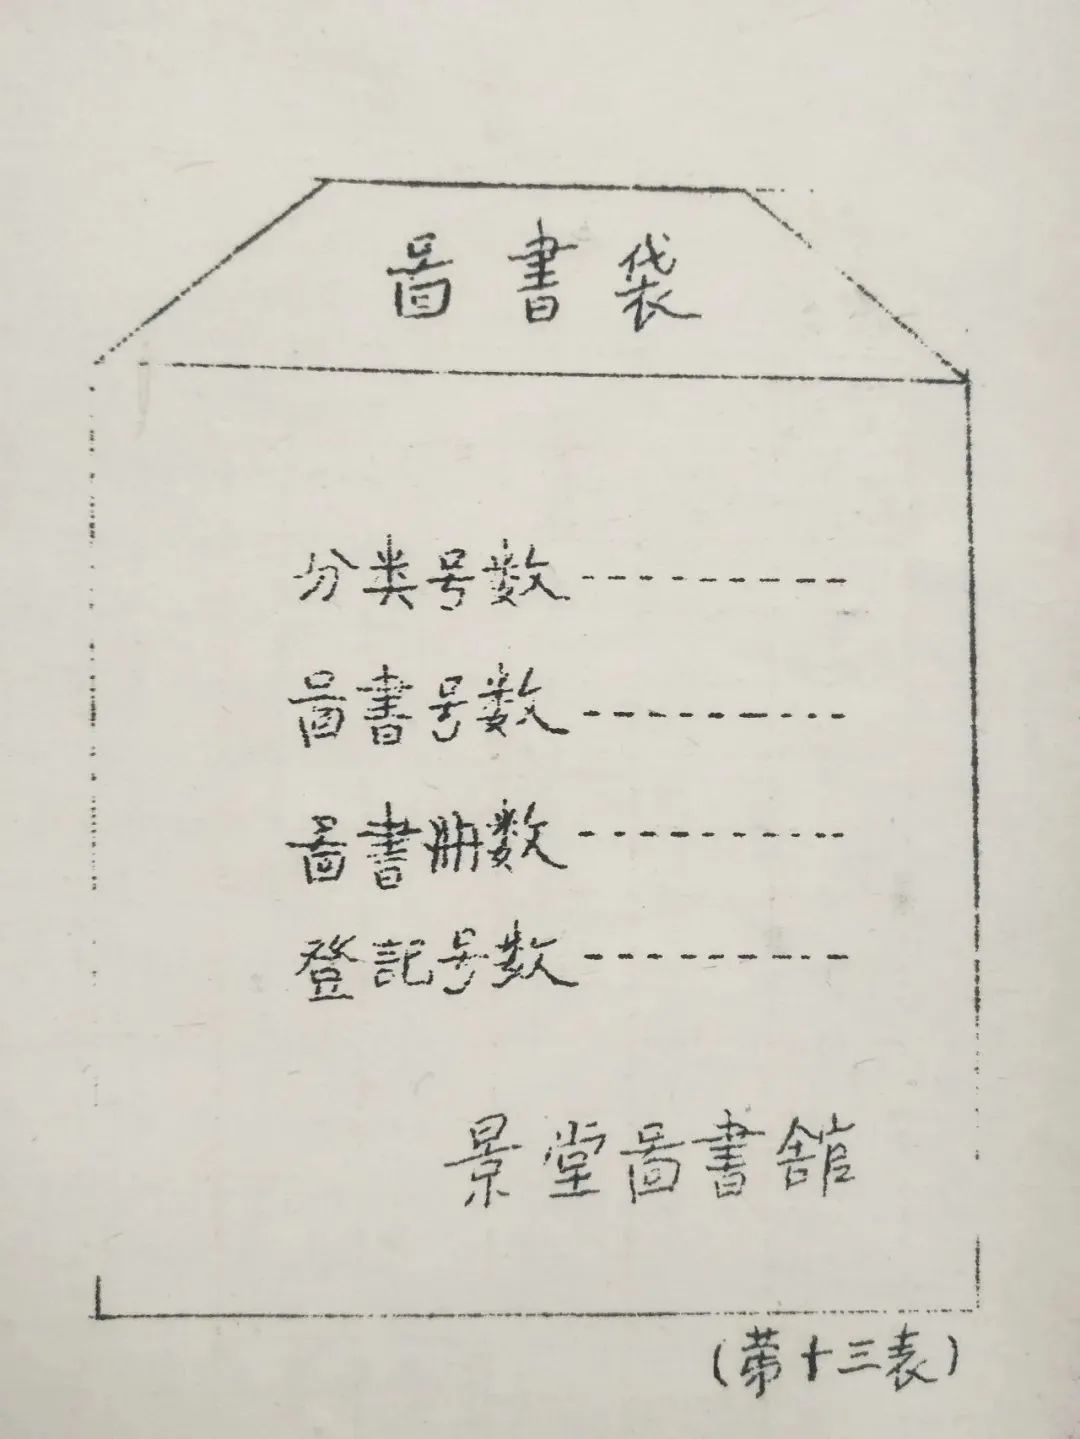 啚書袋
分类号数
啚書号数
啚書册数
登記号数
景堂啚書舘
(第十三表)